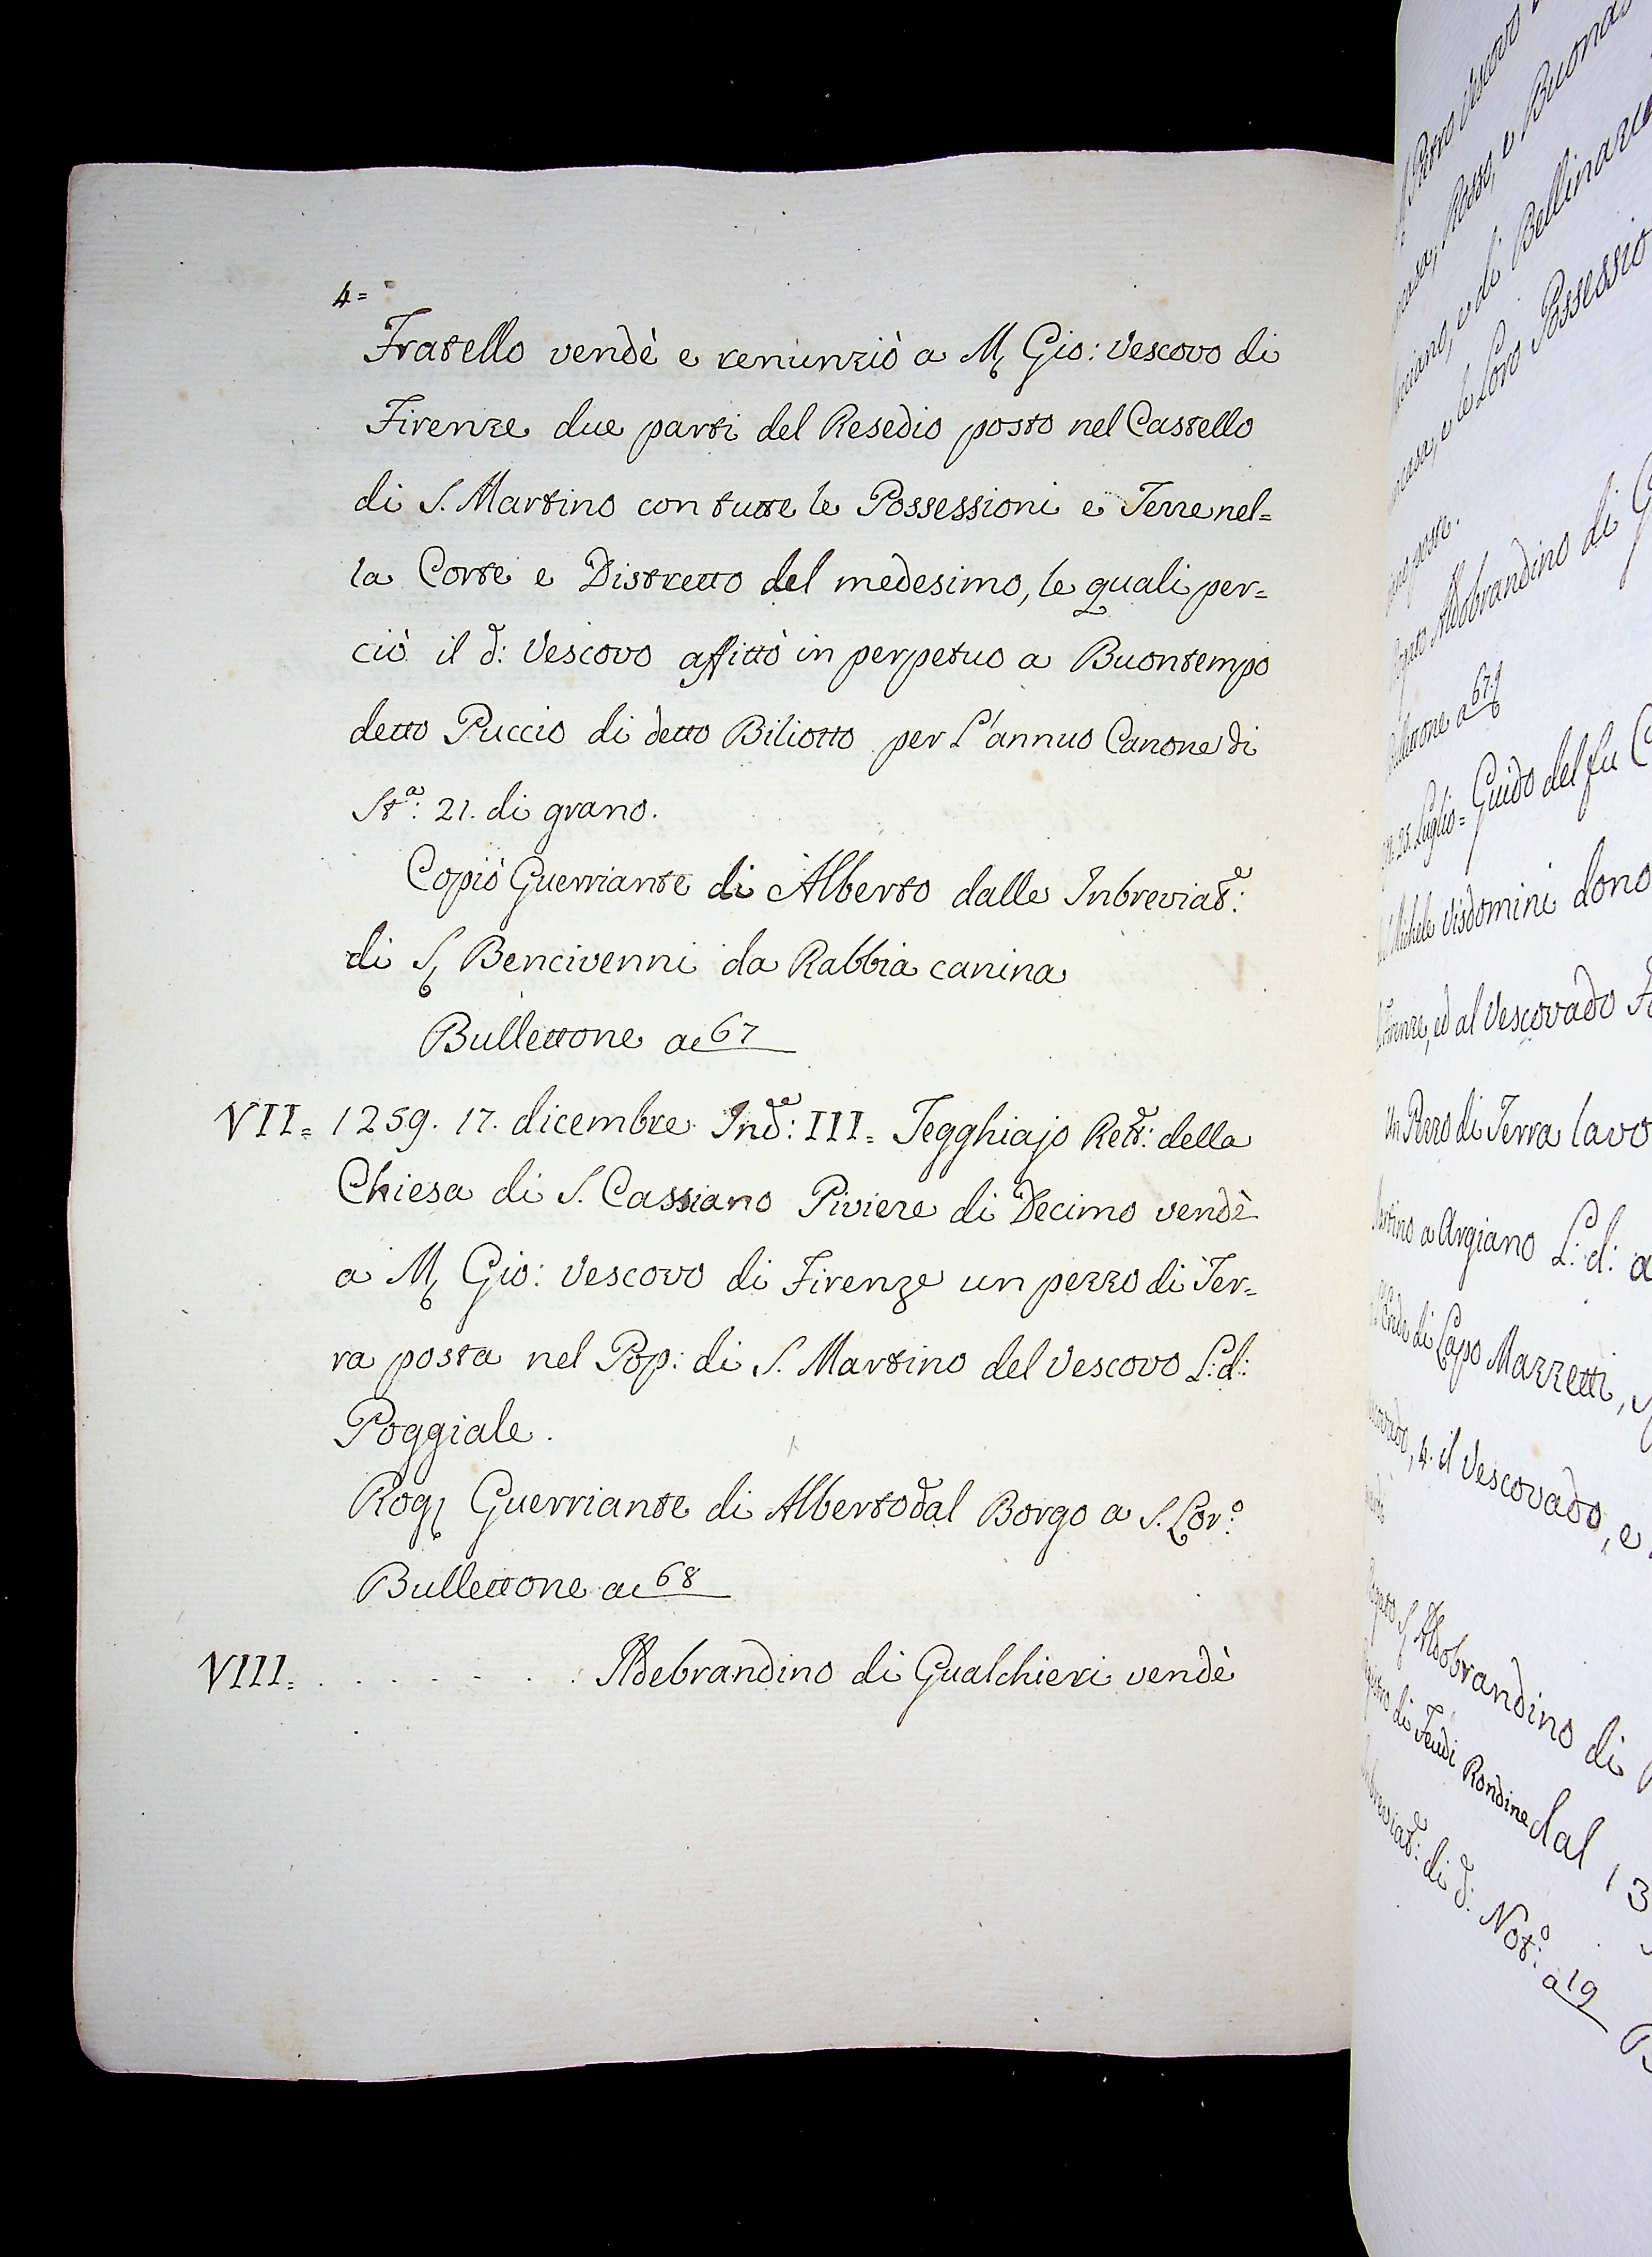 4=
Fratello vendè e renunziò a M. Gio: Vescovo di
Firenze due parti del Resedio posto nel Castello
di S. Martino con tutte le Possessioni e Terre nel=
la Corte e Distretto del medesimo, le quali per=
ciò il d: Vescovo affittò in perpetuo a Buontempo
detto Puccio di detto Biliotto per L'annuo Canone di
Stª: 21. di grano.
Copiò Guerriante di Alberto dalle Inbreviatᵉ:
di S. Bencivenni da Rabbia canina
Bullettone ac 67
VII= 1259. 17. dicembre Indᵉ: III= Tegghiajo Retᵉ: della
Chiesa di S. Cassiano Piviere di Decimo vendè
a M. Gio: Vescovo di Firenze un pezzo di Ter=
ra posta nel Pop: di S. Martino del Vescovo L: d:
Poggiale.
Rog. Guerriante di Alberto dal Borgo a S. Lorº:
Bullettone ac 68
VIII= . . . . . . . Ildebrandino di Gualchieri vendè
Pietro Vescovo
Rosso, e Buonac
e di Bellinare
e le Loro Possessio
poste.
Aldobrandino di G
Bullettone a 67
25. Luglio= Guido del fu C
Michele Visdomini dono
Firenze, ed al Vescovado
Un Pezzo di Terra lavo
Martino a Argiano L: d: a
Erede di Lapo Mazzetti,
4. il Vescovado, e
Aldobrandino di
di Feudi Rondine dal 13
di d: Notº: a 19